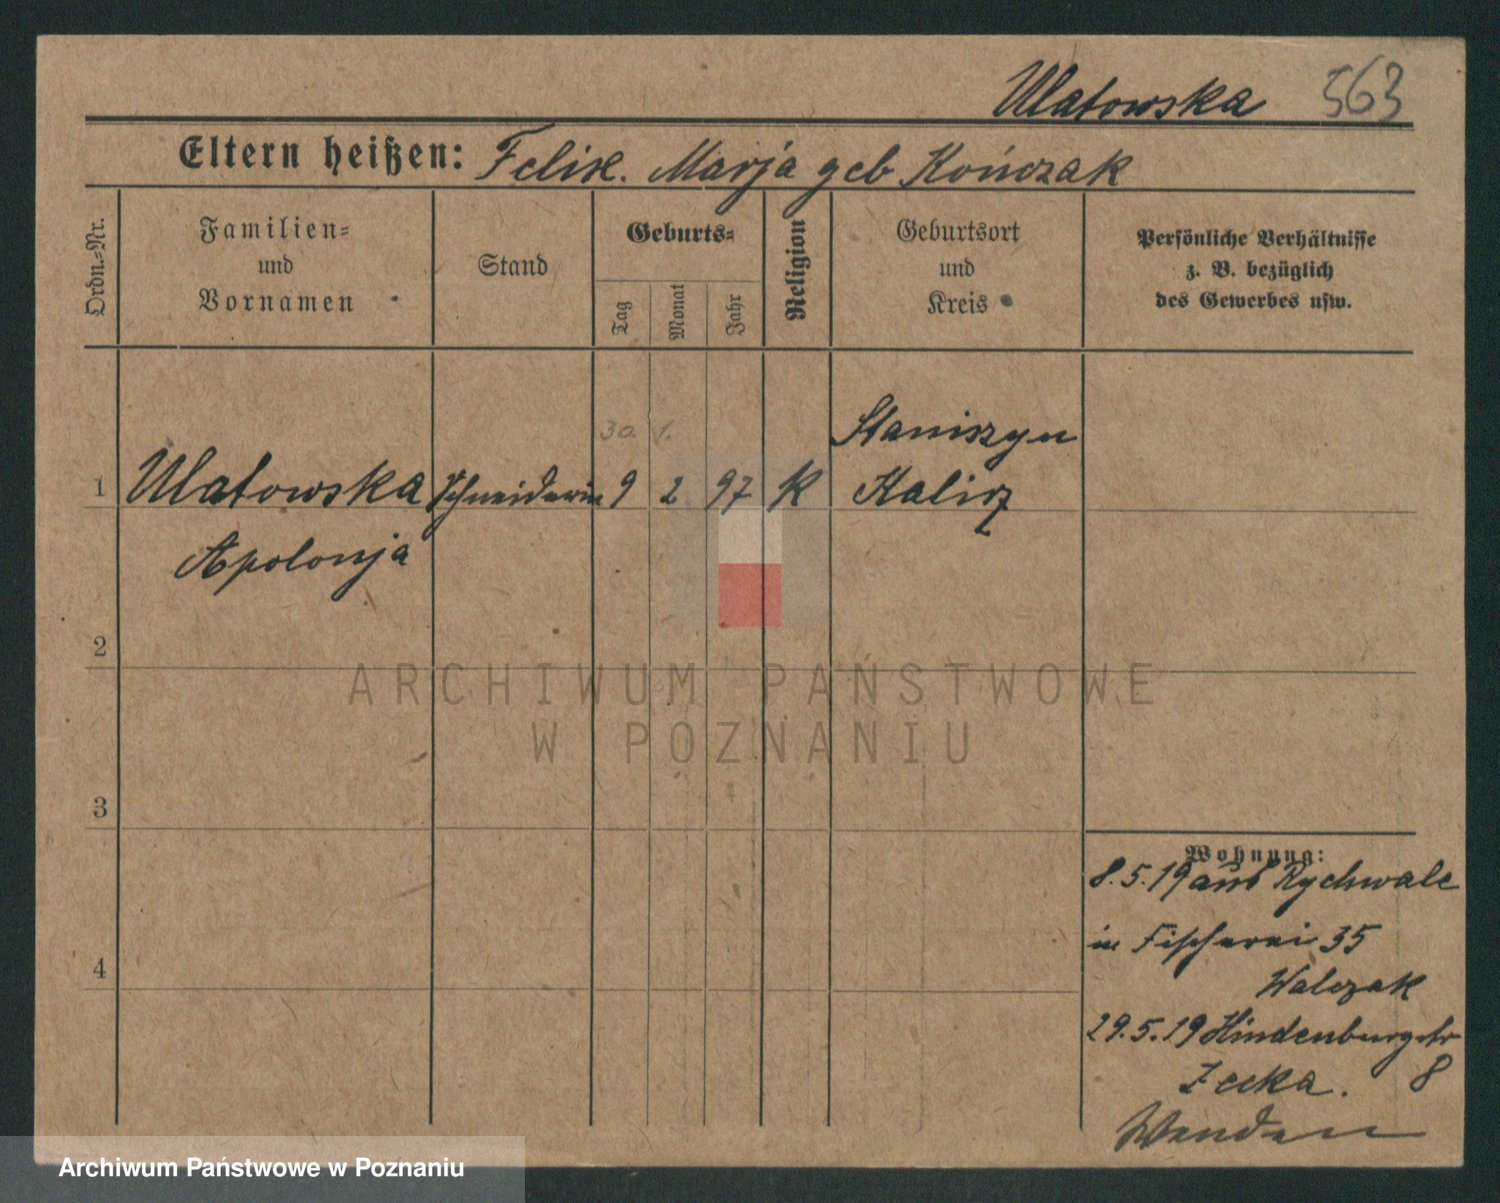 Ulatowska 563
Eltern heißen: Felix. Marja geb Kończak
Ordn.=Nr.
Familien=
und
Vornamen
Stand
Geburts=
Tag
Monat
Jahr
Religion
Geburtsort
und
Kreis
Persönliche Verhältnisse
z. B. bezüglich
des Gewerbes usw.
30. 1.
Staniszyn
1 Ulatowska Schneiderin 9 2 97 K Kalisz
Apolonja
2
ARCHIWUM PAŃSTWOWE
W POZNANIU
3
Wohnung:
8.5.19 aus Rychwale
in Fischerei 35
4
Walczak
29.5.19 Hindenburgstr
8
Wenden
Archiwum Państwowe w Poznaniu